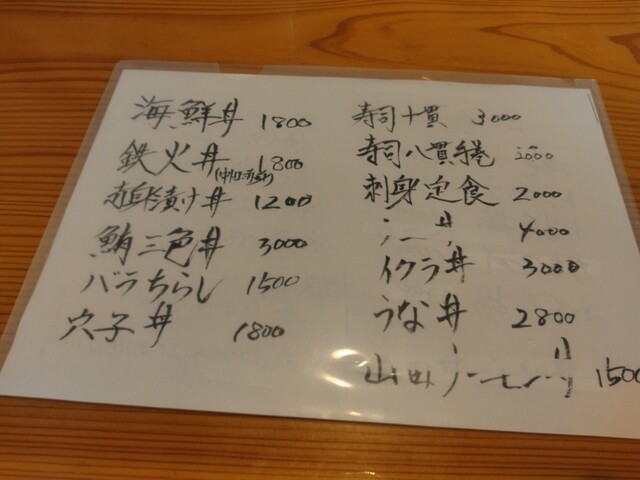 海鮮丼 1800
鉄火丼 1800
赤身漬け丼 1200
鮪三色丼 3000
バラちらし 1500
穴子丼 1800
寿司十貫 3000
寿司八貫手巻 2000
刺身定食 2000
4000
イクラ丼 3000
うな丼 2800
1500